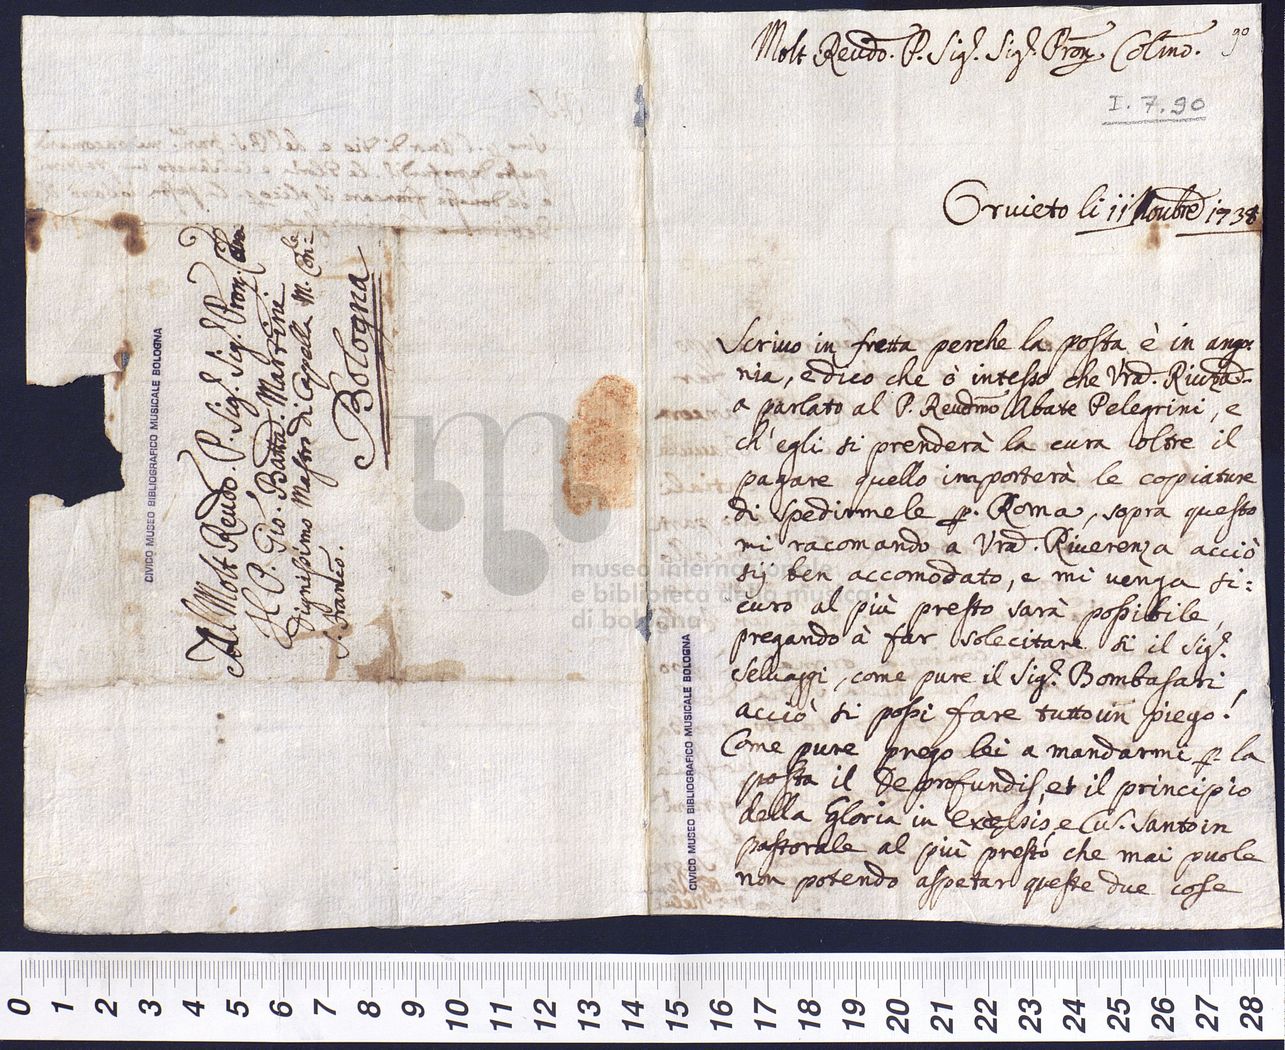 Al Molt Reudo. P. Sig.r Sig.r Pron. Colmo
Il P. Gio. Batta. Martini
Dignissimo Mastro di Capella M. Con:le
S. Franco.
Bologna
CIVICO MUSEO BIBLIOGRAFICO MUSICALE BOLOGNA
Molt Reudo. P. Sig.r Sig.r Pron. Colmo.
90
I. 7. 90
Oruieto li 11 Noubre 1738
Scriuo in fretta perche la posta è in ango:
nia, e dico che ò inteso che Vra. Riuza.
a parlato al P. Reudmo Abate Pelegrini, e
ch'egli si prenderà la cura oltre il
pagare quello importerà le copiature
di spedirmele p. Roma, sopra questo
mi racomando a Vra. Riuerenza acciò
sij ben accomodato, e mi uenga si:
curo al più presto sarà possibile,
pregando à far solecitare si il Sig.r
Seluaggi, come pure il Sig.r Bombasari
acciò si possi fare tutto un piego!
Come pure prego lei a mandarmi p. la
posta il De profundis, et il principio
della Gloria in Excelsis, e Cu. Santo in
pastorale al più presto che mai puole
non potendo aspetar queste due cose
CIVICO MUSEO BIBLIOGRAFICO MUSICALE BOLOGNA
museo internazionale
e biblioteca della musica
di bologna
0 1 2 3 4 5 6 7 8 9 10 11 12 13 14 15 16 17 18 19 20 21 22 23 24 25 26 27 28